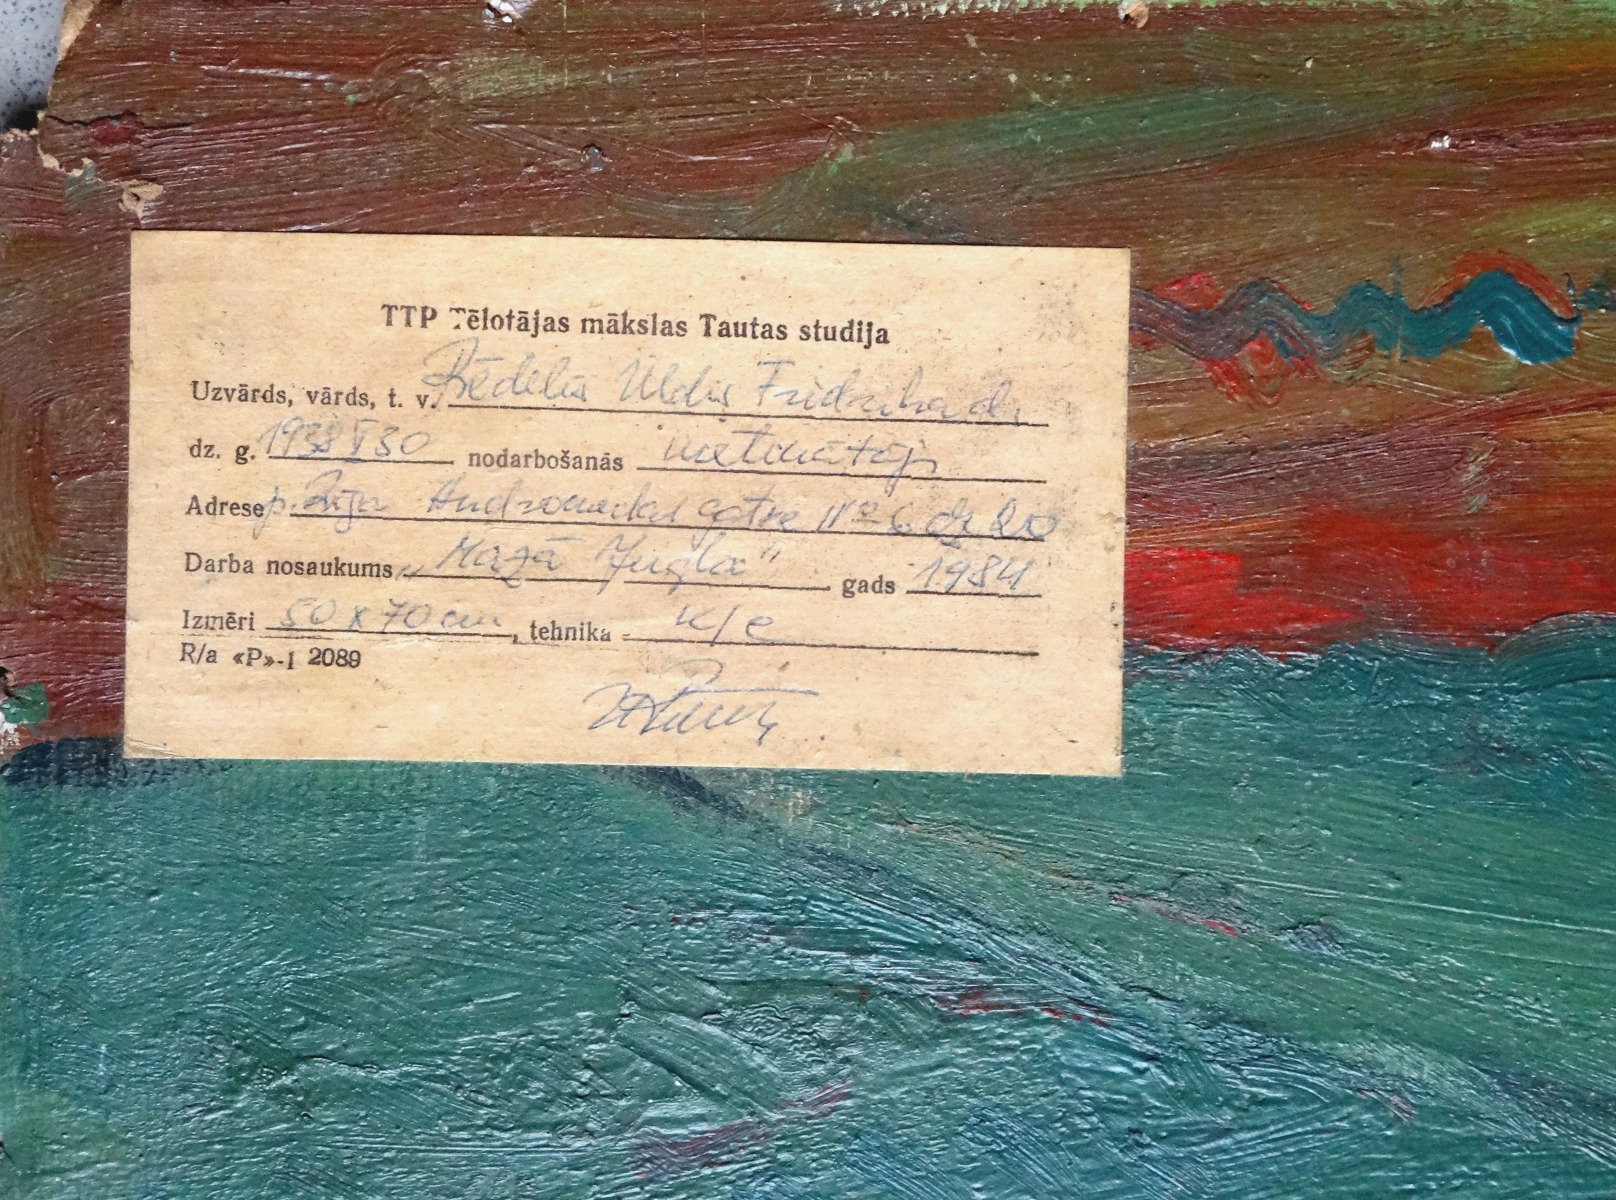 TTP Tēlotājas mākslas Tautas studija
Uzvārds, vārds, t. v. Uldis
dz. g. 1938 V 30 nodarbošanās metinātājs
Adrese Rīga Andromedas gatve Nº 6 dz 20
Darba nosaukums „Mazā Jugla" gads 1984
Izmēri 50 x 70 cm, tehnika - K/e
R/a «P»-1 2089